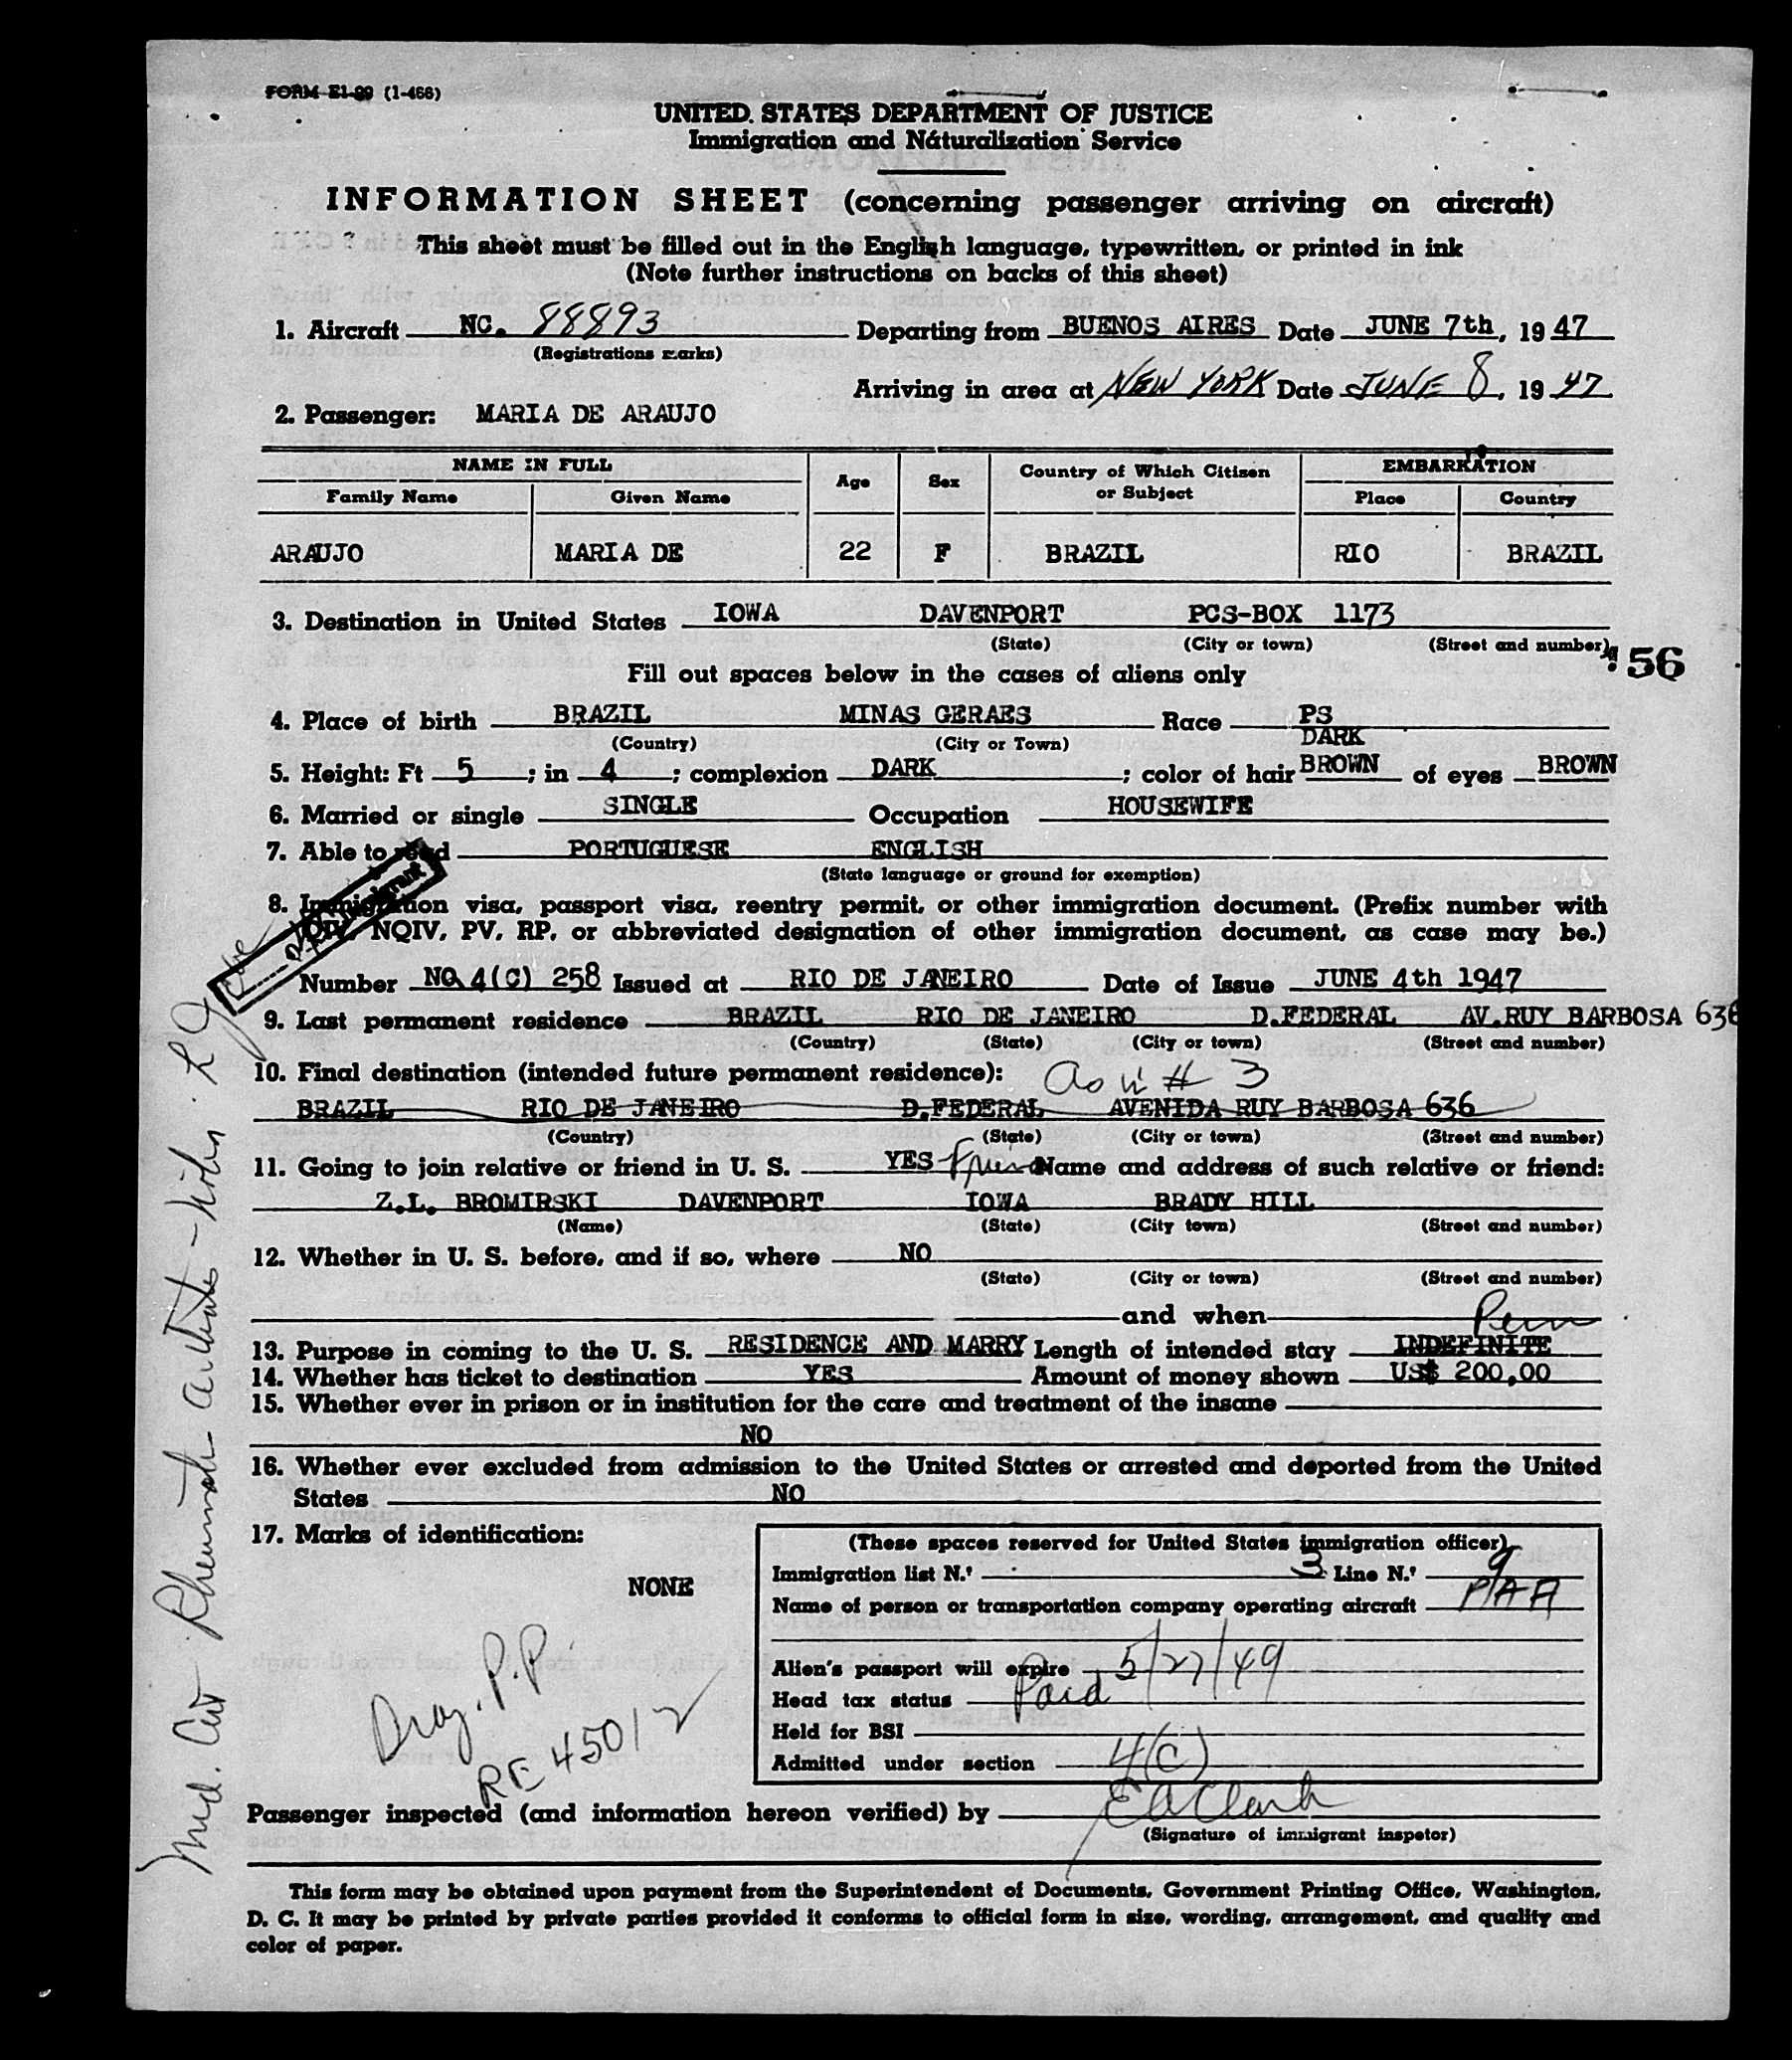 FORM E1-89 (1-466)
UNITED STATES DEPARTMENT OF JUSTICE
Immigration and Naturalization Service
INFORMATION SHEET (concerning passenger arriving on aircraft)
This sheet must be filled out in the English language, typewritten, or printed in ink
(Note further instructions on backs of this sheet)
1. Aircraft NC. 88893 Departing from BUENOS AIRES Date JUNE 7th, 19 47
(Registrations marks)
Arriving in area at NEW YORK Date JUNE 8, 19 47
2. Passenger: MARIA DE ARAUJO
NAME IN FULL Age Sex Country of Which Citizen or Subject EMBARKATION
Family Name Given Name Place Country
ARAUJO MARIA DE 22 F BRAZIL RIO BRAZIL
3. Destination in United States IOWA DAVENPORT PCS-BOX 1173
(State) (City or town) (Street and number)
56
Fill out spaces below in the cases of aliens only
4. Place of birth BRAZIL MINAS GERAES Race PS
(Country) (City or Town)
DARK
5. Height: Ft 5 ; in 4 ; complexion DARK ; color of hair BROWN of eyes BROWN
6. Married or single SINGLE Occupation HOUSEWIFE
7. Able to read PORTUGUESE ENGLISH
(State language or ground for exemption)
8. Immigration visa, passport visa, reentry permit, or other immigration document. (Prefix number with
QIV, NQIV, PV, RP, or abbreviated designation of other immigration document, as case may be.)
Number NQ 4(C) 258 Issued at RIO DE JANEIRO Date of Issue JUNE 4th 1947
9. Last permanent residence BRAZIL RIO DE JANEIRO D.FEDERAL AV.RUY BARBOSA 636
(Country) (State) (City or town) (Street and number)
10. Final destination (intended future permanent residence): as in # 3
BRAZIL RIO DE JANEIRO D.FEDERAL AVENIDA RUY BARBOSA 636
(Country) (State) (City or town) (Street and number)
11. Going to join relative or friend in U. S. YES Friend Name and address of such relative or friend:
Z.L. BROMIRSKI DAVENPORT IOWA BRADY HILL
(Name) (State) (City town) (Street and number)
12. Whether in U. S. before, and if so, where NO
(State) (City or town) (Street and number)
and when
Perm
13. Purpose in coming to the U. S. RESIDENCE AND MARRY Length of intended stay INDEFINITE
14. Whether has ticket to destination YES Amount of money shown US$ 200,00
15. Whether ever in prison or in institution for the care and treatment of the insane
NO
16. Whether ever excluded from admission to the United States or arrested and deported from the United
States NO
17. Marks of identification:
NONE
(These spaces reserved for United States immigration officer)
Immigration list N.' 3 Line N.' 9
Name of person or transportation company operating aircraft PAA
Alien's passport will expire 5/27/49
Head tax status Paid
Held for BSI
Admitted under section 4(C)
Braz. P.P.
RE 45012
Passenger inspected (and information hereon verified) by E A Clark
(Signature of immigrant inspetor)
This form may be obtained upon payment from the Superintendent of Documents, Government Printing Office, Washington,
D. C. It may be printed by private parties provided it conforms to official form in size, wording, arrangement, and quality and
color of paper.
Med. Cert Rheumatic arthritis